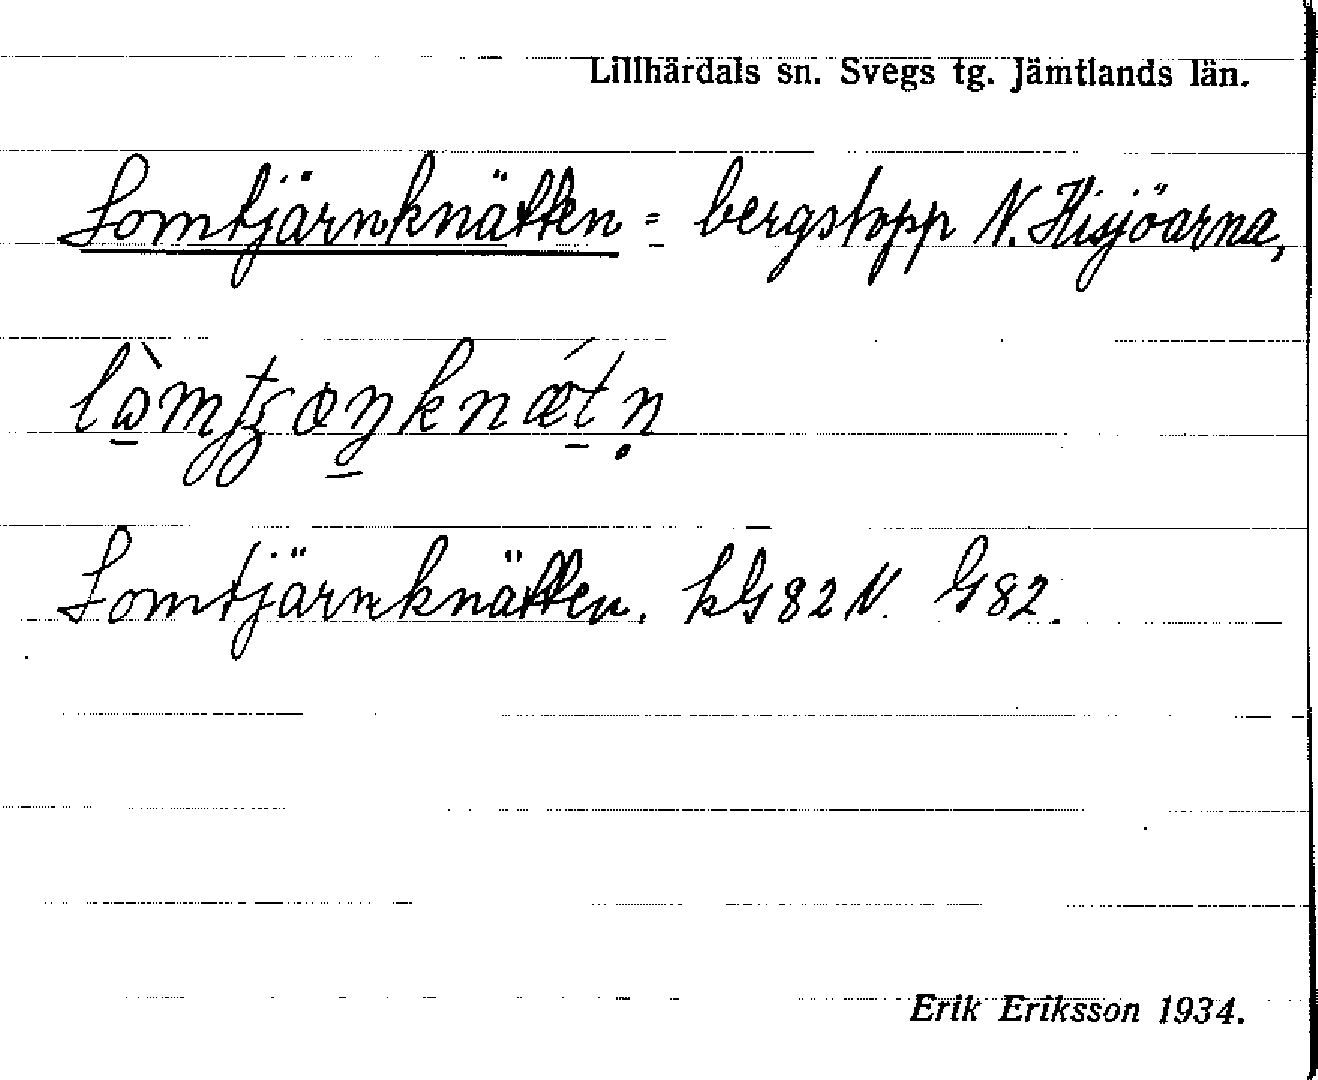 Lillhärdals sn. Svegs tg. Jämtlands län.
Lomtjärnknätten = bergstopp N. Hisjöarna,
Lomtjärnknätten. kG82N. G82.
Erik Eriksson 1934.